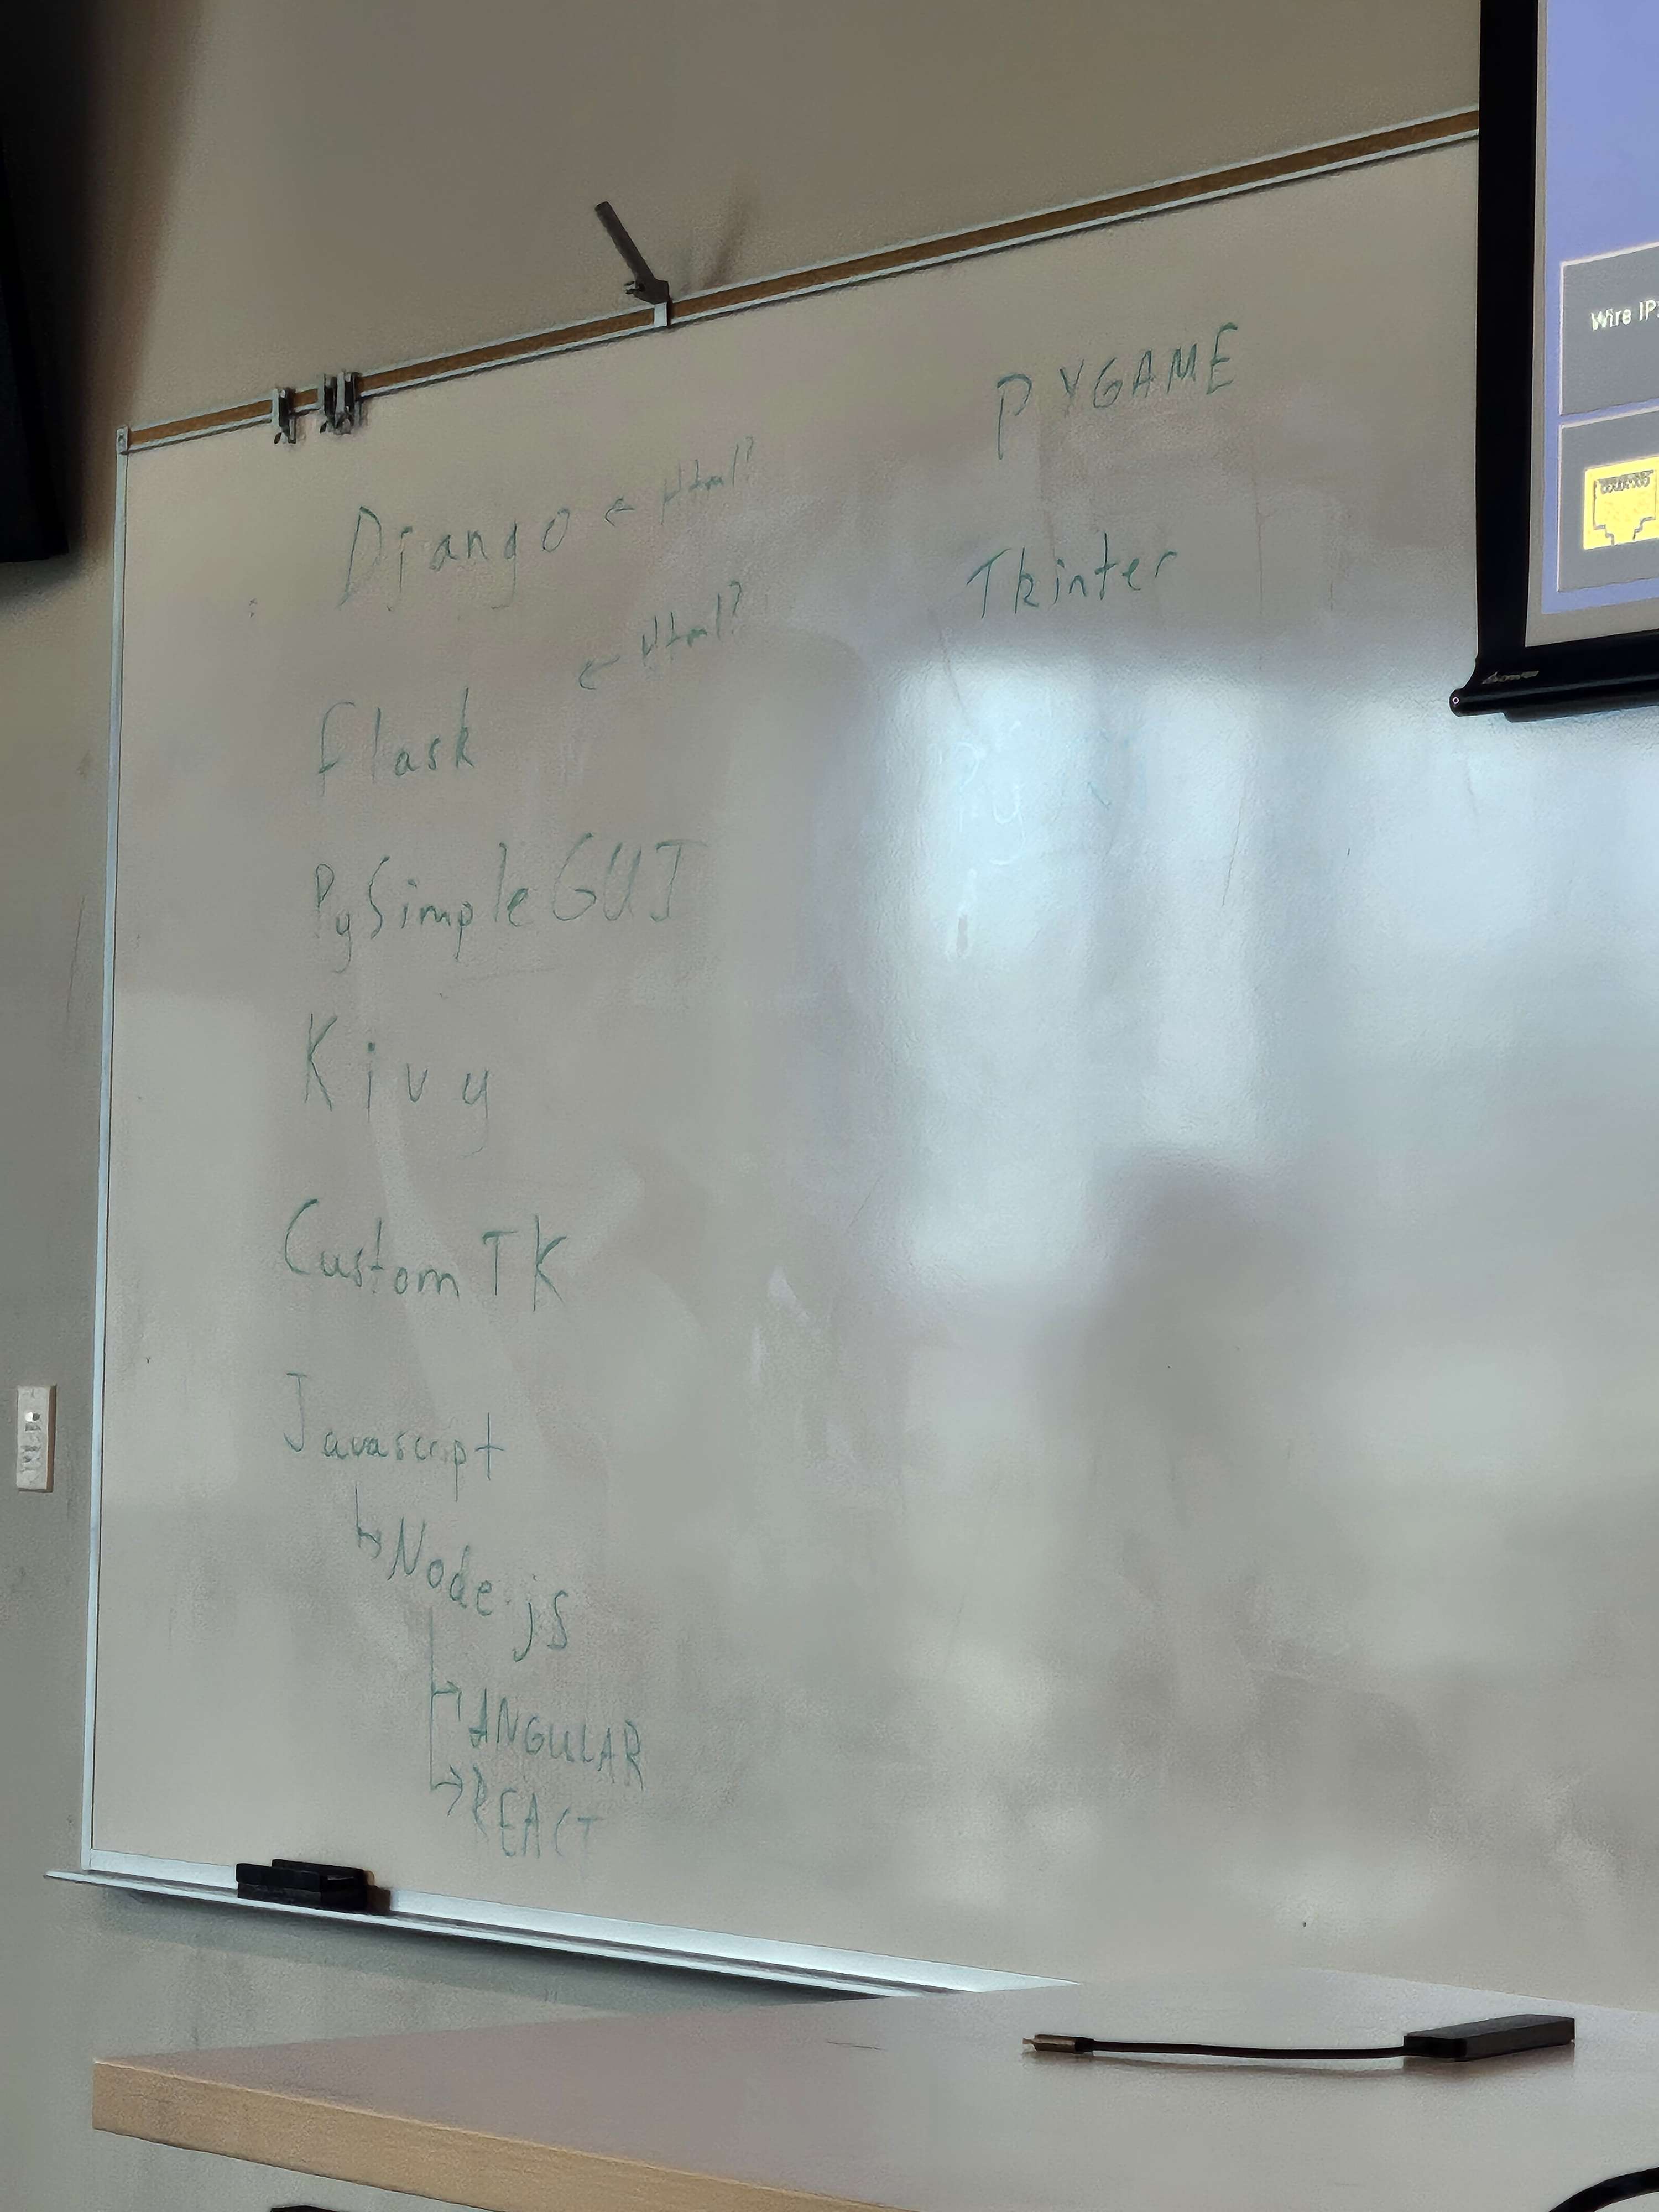 Django ← Html?
Flask ← Html?
PySimpleGUI
Kivy
Custom TK
Javascript
↳ Node.js
→ ANGULAR
→ REACT
PYGAME
Tkinter
Wire IP